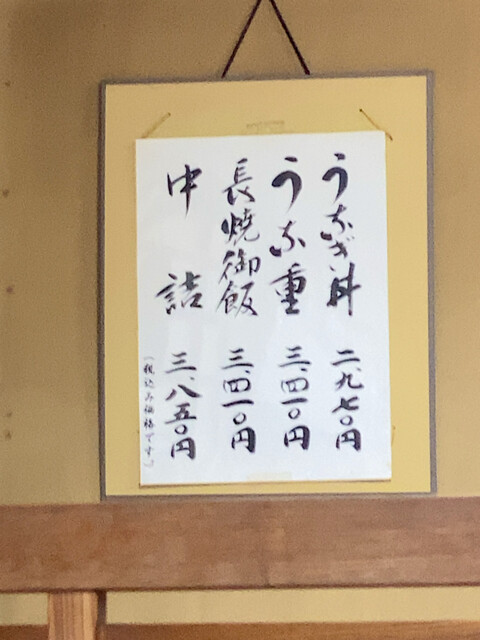 うなぎ丼 二、九七〇円
うな重 三、四一〇円
長焼御飯 三、四一〇円
中詰 三、八五〇円
(税込み価格です。)